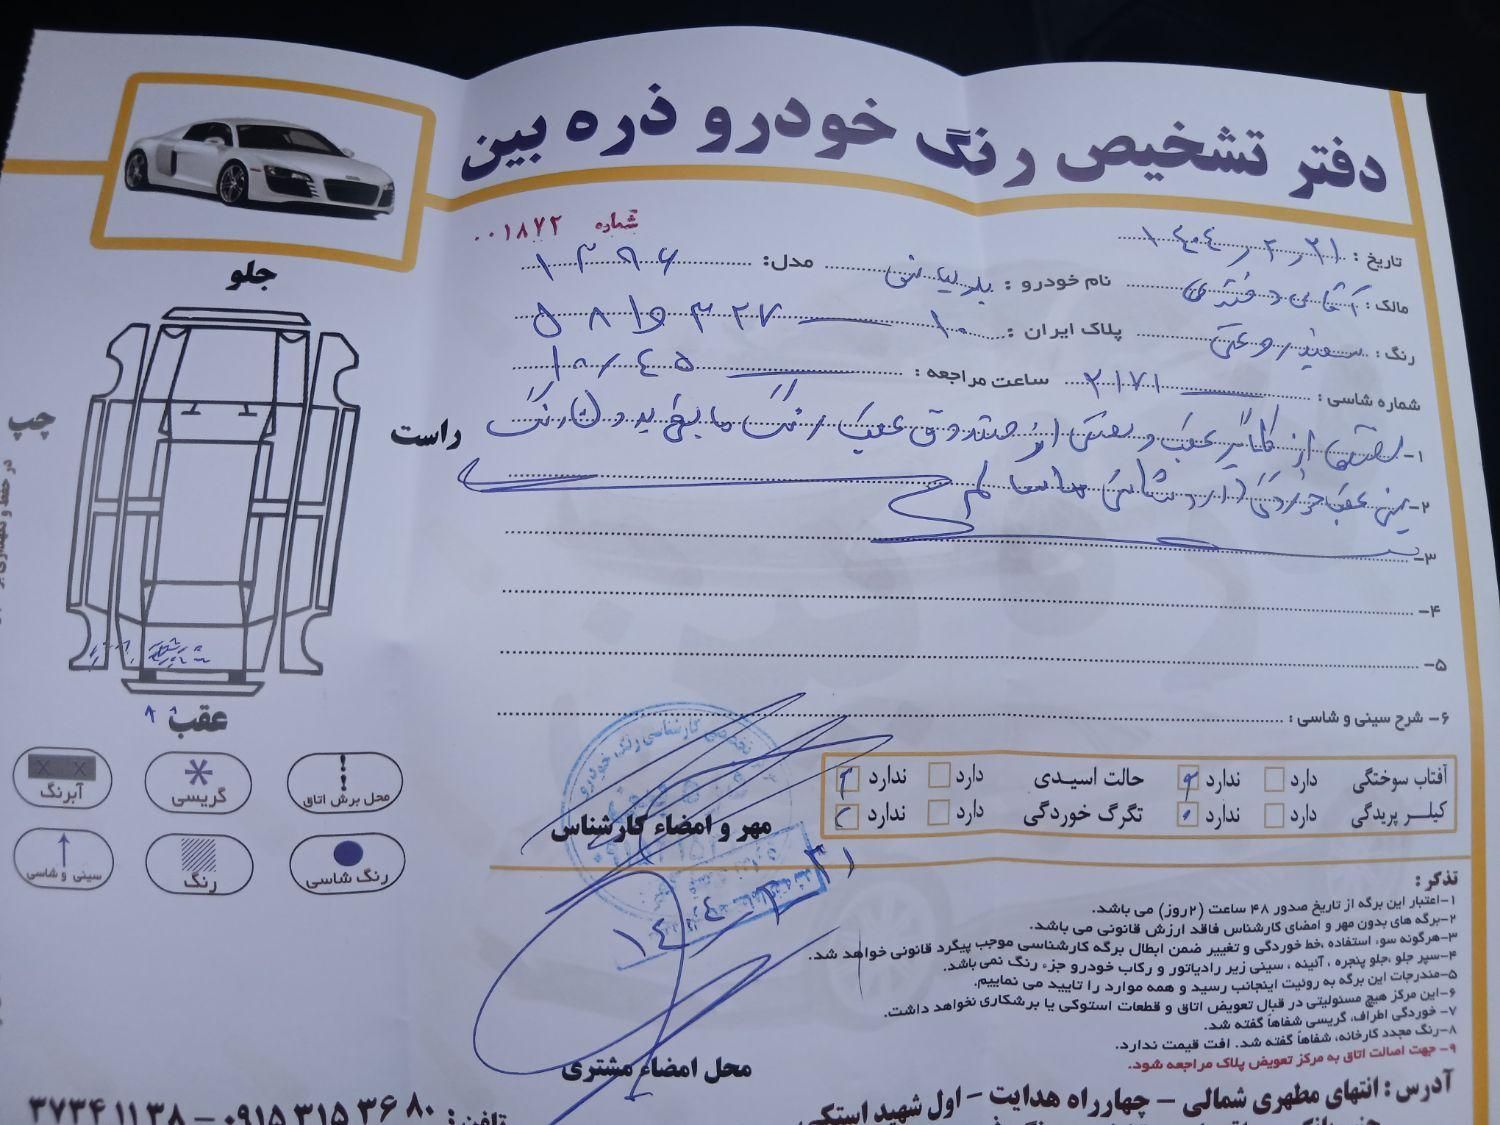 دفتر تشخیص رنگ خودرو ذره بین
شماره ۰۰۱۸۷۲
تاریخ : ۱۴۰۴٫۲٫۲۱
مالک : آقای دختری نام خودرو : برلیانس مدل: ۱۳۹۶
رنگ : سفید روغنی پلاک ایران : ۱۰ ۳۲۷ و ۵۸
شماره شاسی : ۲۱۷۱ ساعت مراجعه : ۱۰٫۴۵
۱- قسمتی از گلگیر عقب و بعضی از صندوق عقب رنگ مابقی بدون رنگ
۲- سینی عقب خوردگی دارد شاسی ها سالم
۳-
۴-
۵-
۶- شرح سینی و شاسی :
جلو
چپ
راست
عقب
محل برش اتاق
گریسی
آبرنگ
رنگ شاسی
رنگ
سینی و شاسی
آفتاب سوختگی دارد ندارد حالت اسیدی دارد ندارد
کیلر پریدگی دارد ندارد تگرگ خوردگی دارد ندارد
مهر و امضاء کارشناس
۱۴۰۴٫۲٫۲۱
محل امضاء مشتری
تذکر :
۱-اعتبار این برگه از تاریخ صدور ۴۸ ساعت (۲روز) می باشد.
۲-برگه های بدون مهر و امضای کارشناس فاقد ارزش قانونی می باشد.
۳-هرگونه سوء استفاده ،خط خوردگی و تغییر ضمن ابطال برگه کارشناسی موجب پیگرد قانونی خواهد شد.
۴-سپر جلو ،جلو پنجره ، آئینه ، سینی زیر رادیاتور و رکاب خودرو جزء رنگ نمی باشد.
۵-مندرجات این برگه به روئیت اینجانب رسید و همه موارد را تایید می نماییم.
۶-این مرکز هیچ مسئولیتی در قبال تعویض اتاق و قطعات استوکی یا برشکاری نخواهد داشت.
۷- خوردگی اطراف، گریسی شفاهاً گفته شد.
۸-رنگ مجدد کارخانه، شفاهاً گفته شد. افت قیمت ندارد.
۹- جهت اصالت اتاق به مرکز تعویض پلاک مراجعه شود.
آدرس : انتهای مطهری شمالی - چهارراه هدایت - اول شهید استکی
تلفن: ۰۹۱۵ ۳۱۵ ۳۶ ۸۰ - ۳۷۳۴ ۱۱ ۳۸